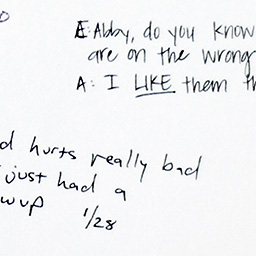 E: Abby, do you know
are on the wrong
A: I LIKE them th
d hurts really bad
just had a
wup 1/28